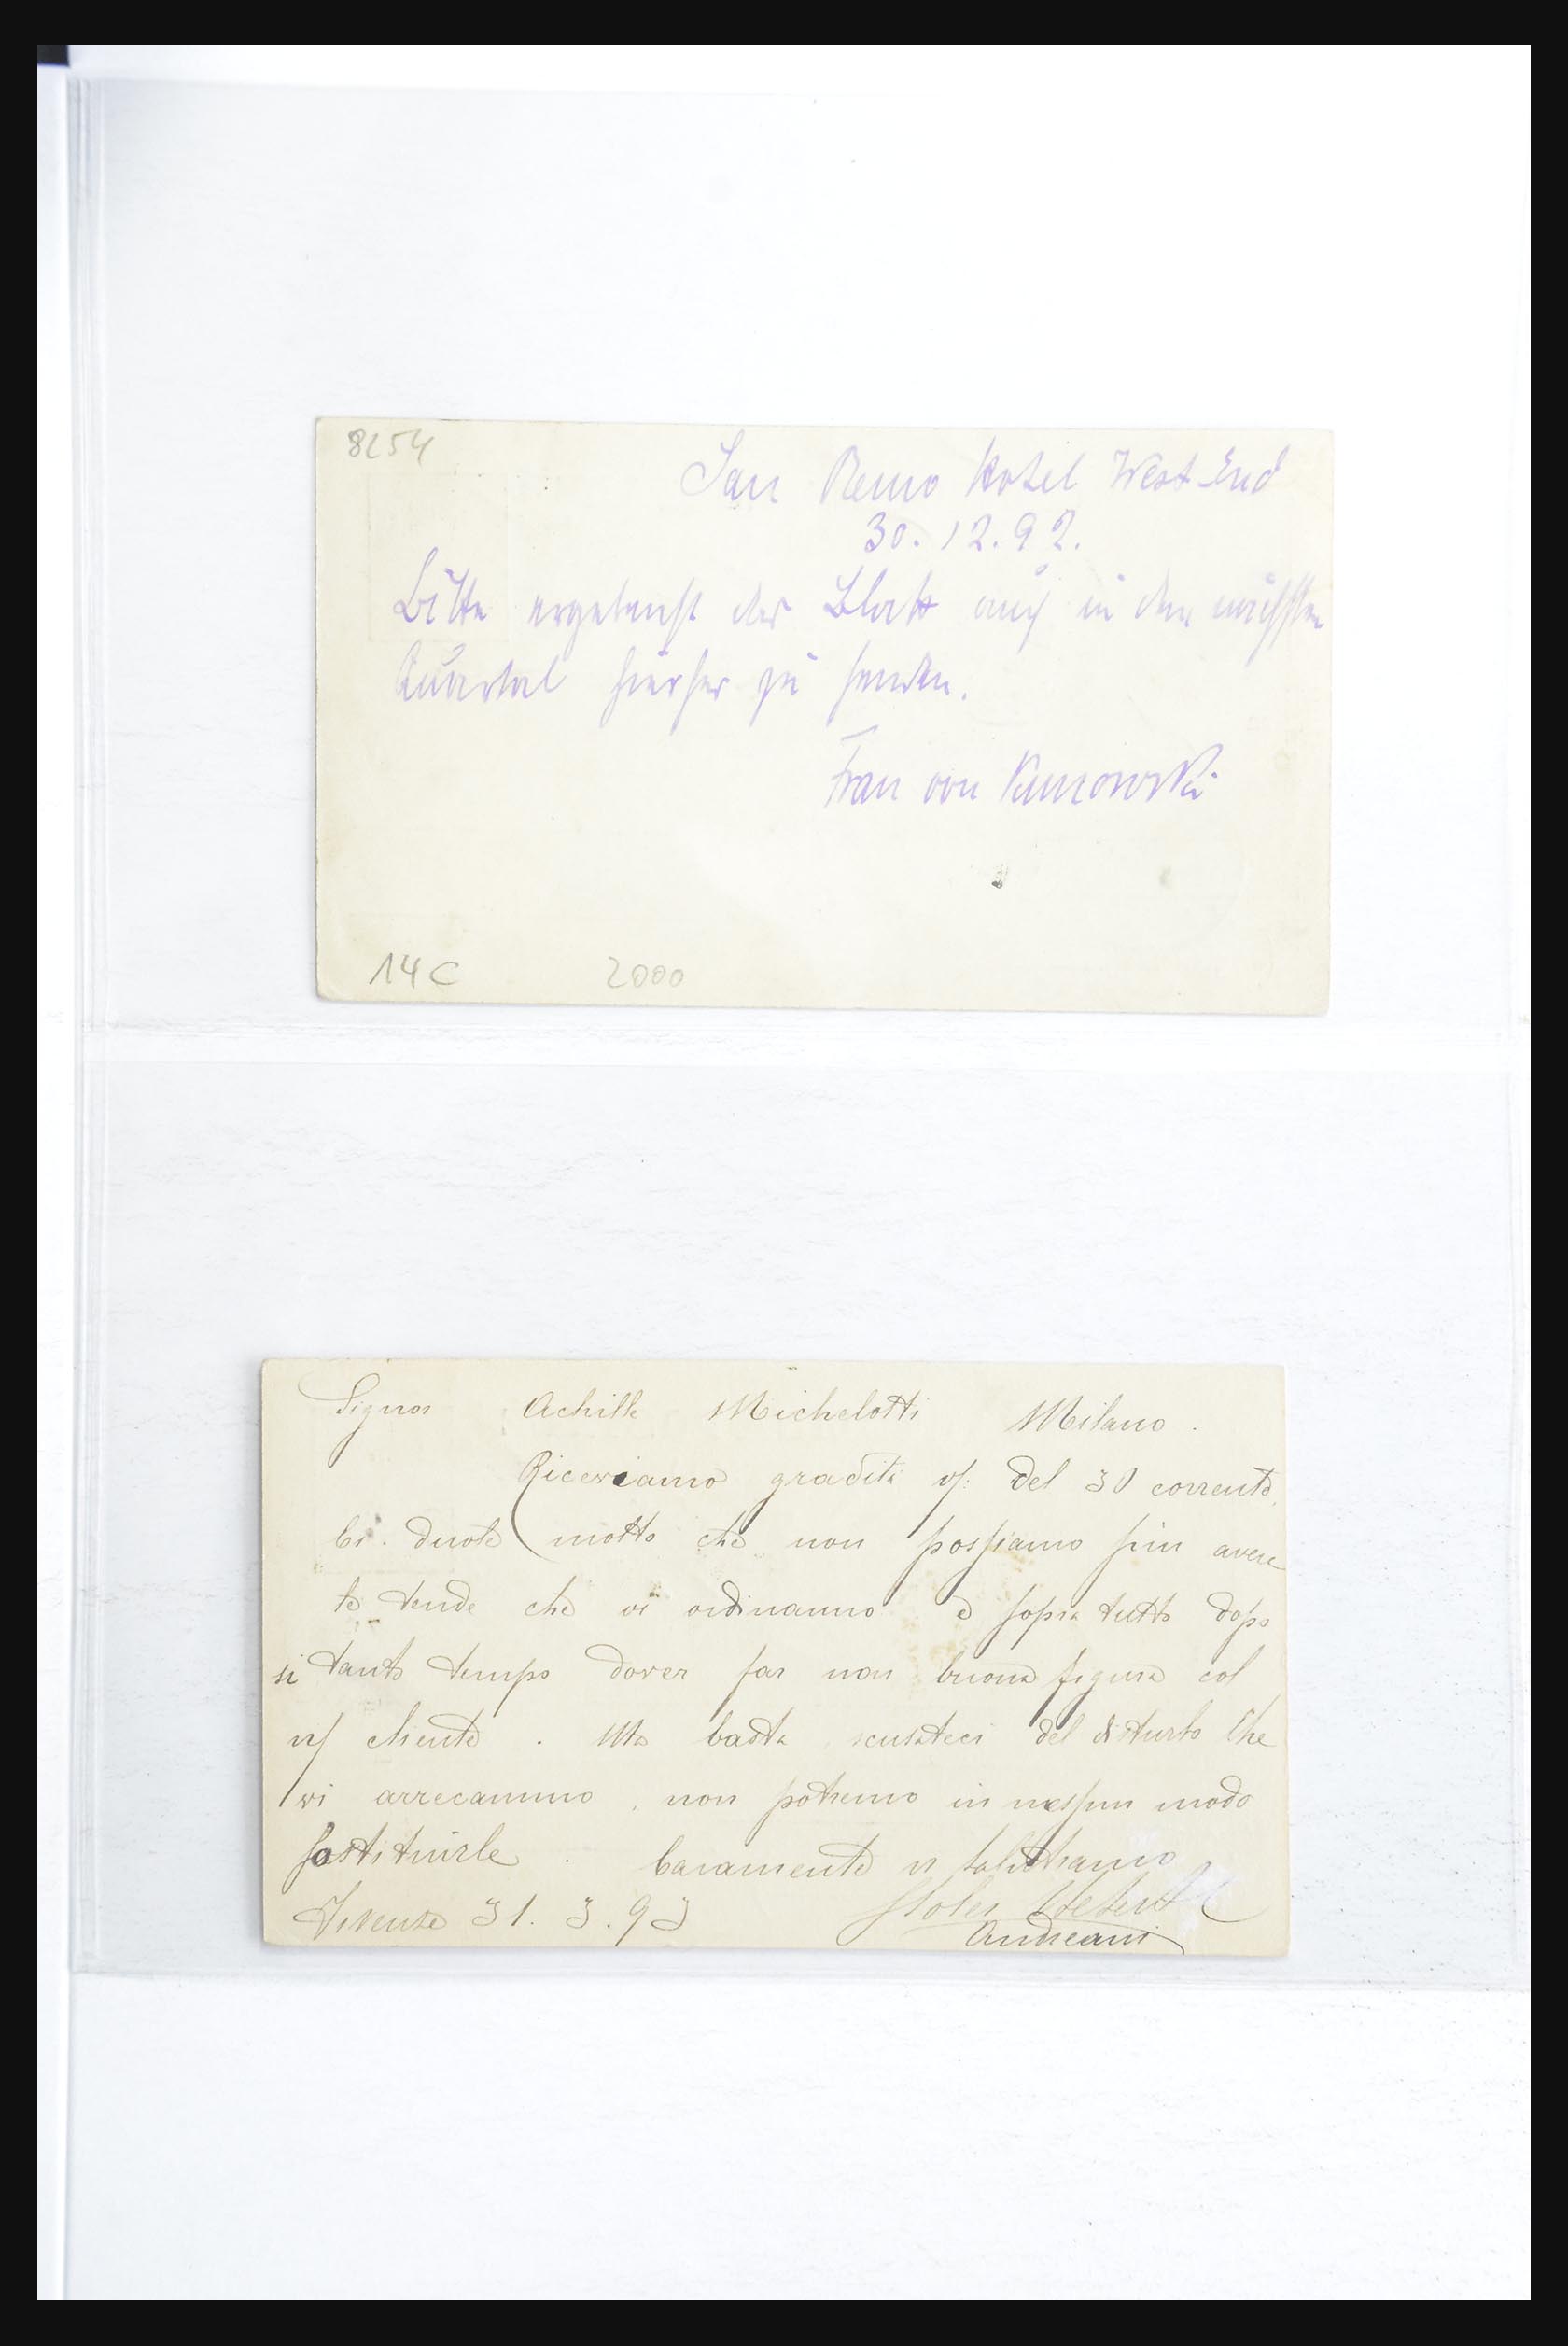 8254
San Remo Hotel West End
30.12.92.
Bitte ergebenst das Blatt auch in dem nächsten
Quartal hierher zu senden.
Frau von
14 C 2000
Signor Achille Michelotti Milano.
Riceviamo gradita v/: del 30 corrente.
Ci. duole molto che non possiamo più avere
le tende che vi ordinammo e sopra tutto dopo
si tanto tempo dover far non buona figura col
n/ cliente. Ma basta scusateci del disturbo che
vi arrecammo, non potremo in nessun modo
sostituirle. Caramente vi salutiamo
Firenze 31.3.93
Andreani